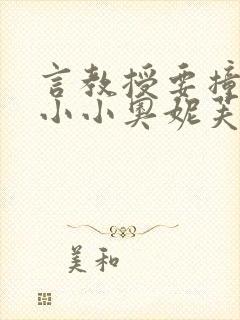 言教授要撞
小小奥妮芙
美和